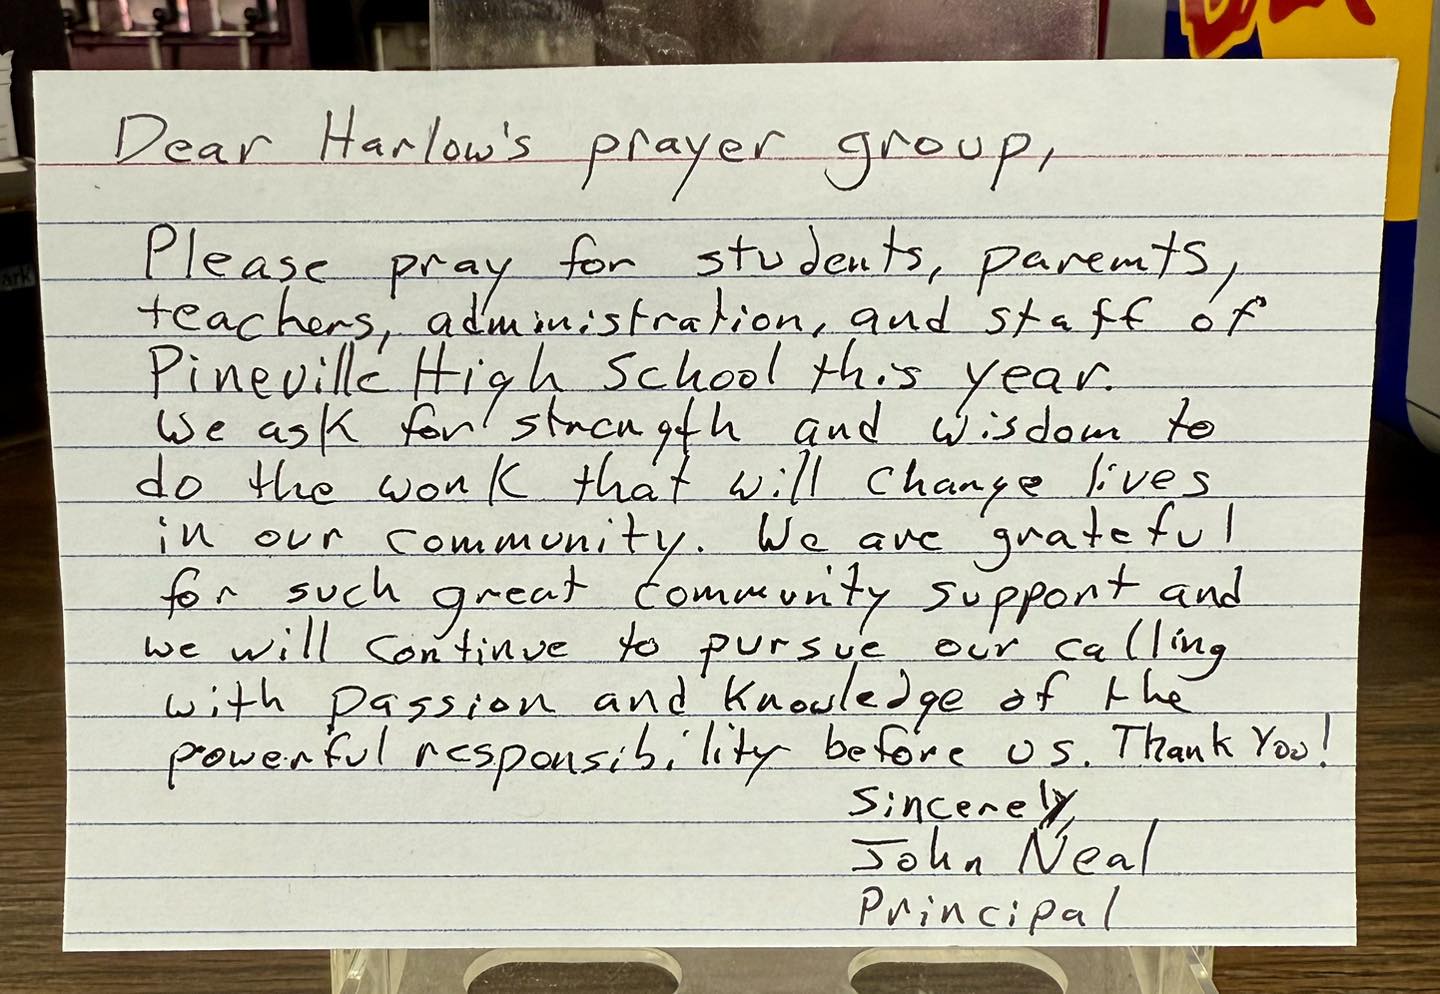 Dear Harlow's prayer group,
Please pray for students, parents,
teachers, administration, and staff of
Pineville High School this year.
We ask for strength and wisdom to
do the work that will change lives
in our community. We are grateful
for such great community support and
we will continue to pursue our calling
with passion and knowledge of the
powerful responsibility before us. Thank You!
Sincerely,
John Neal
Principal